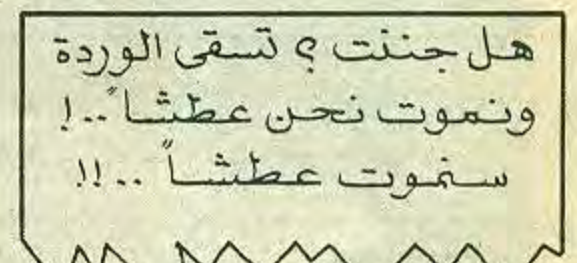 هل جننت ؟ تسقى الوردة
ونموت نحن عطشاً ..!
سنموت عطشاً ..!!